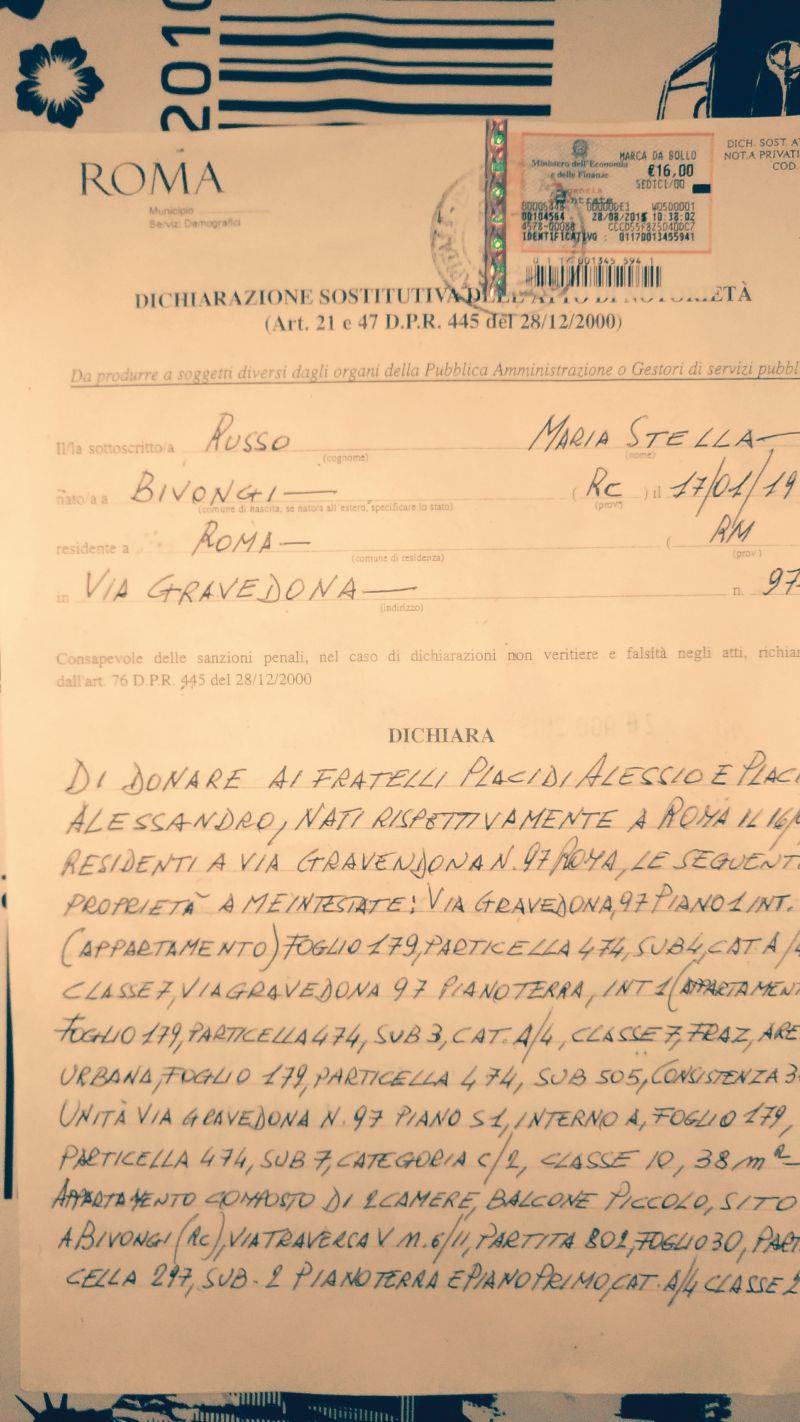 2010
ROMA
Municipio
Servizi Demografici
Ministero dell'Economia
e delle Finanze
MARCA DA BOLLO
€16,00
SEDICI/00
genzia
ntrate
00104564 28/08/2015 10:38:02
IDENTIFICATIVO : 01170013455941
0 1 1 001345 594 1
DICH. SOST
NOT.A PRIVATI
COD.
DICHIARAZIONE SOSTITUTIVA DELL'ATTO DI NOTORIETÀ
(Art. 21 e 47 D.P.R. 445 del 28/12/2000)
Da produrre a soggetti diversi dagli organi della Pubblica Amministrazione o Gestori di servizi pubbl
Il/la sottoscritto/a RUSSO MARIA STELLA
(cognome) (nome)
nato/a a BIVONGI (RC) il 17/01/19
(comune di nascita, se nato/a all'estero, specificare lo stato) (prov)
residente a ROMA ( RM
(comune di residenza) (prov.)
in VIA GRAVEDONA n. 97
(indirizzo)
Consapevole delle sanzioni penali, nel caso di dichiarazioni non veritiere e falsità negli atti, richiam
dall'art. 76 D.P.R. 445 del 28/12/2000
DICHIARA
DI DONARE AI FRATELLI PLACIDI ALESSIO E PLACI
ALESSANDRO, NATI RISPETTIVAMENTE A ROMA IL 16/
RESIDENTI A VIA GRAVENDONA N. 97 ROMA, LE SEGUENTI
PROPRIETÀ A ME INTESTATE: VIA GRAVEDONA, 97 PIANO 1 INT.
(APPARTAMENTO) FOGLIO 179, PARTICELLA 474, SUB 4, CAT A/4
CLASSE 7, VIA GRAVEDONA 97 PIANO TERRA, INT 1 (APPARTAMEN
FOGLIO 179, PARTICELLA 474, SUB 3, CAT. A/4, CLASSE 7, FRAZ, ARE
URBANA, FOGLIO 179, PARTICELLA 474, SUB 505, CONSISTENZA 3
UNITÀ VIA GRAVEDONA N. 97 PIANO S1, INTERNO A, FOGLIO 179,
PARTICELLA 474, SUB 7, CATEGORIA C/2, CLASSE 10, 38 m²
APPARTAMENTO COMPOSTO DI 2 CAMERE, BALCONE PICCOLO, SITO
A BIVONGI (RC), VIA TRAVERSA V N. 6/11, PARTITA 802, FOGLIO 30, PARTI
CELLA 297, SUB - 2 PIANO TERRA E PIANO PRIMO, CAT. A/4 CLASSE 2